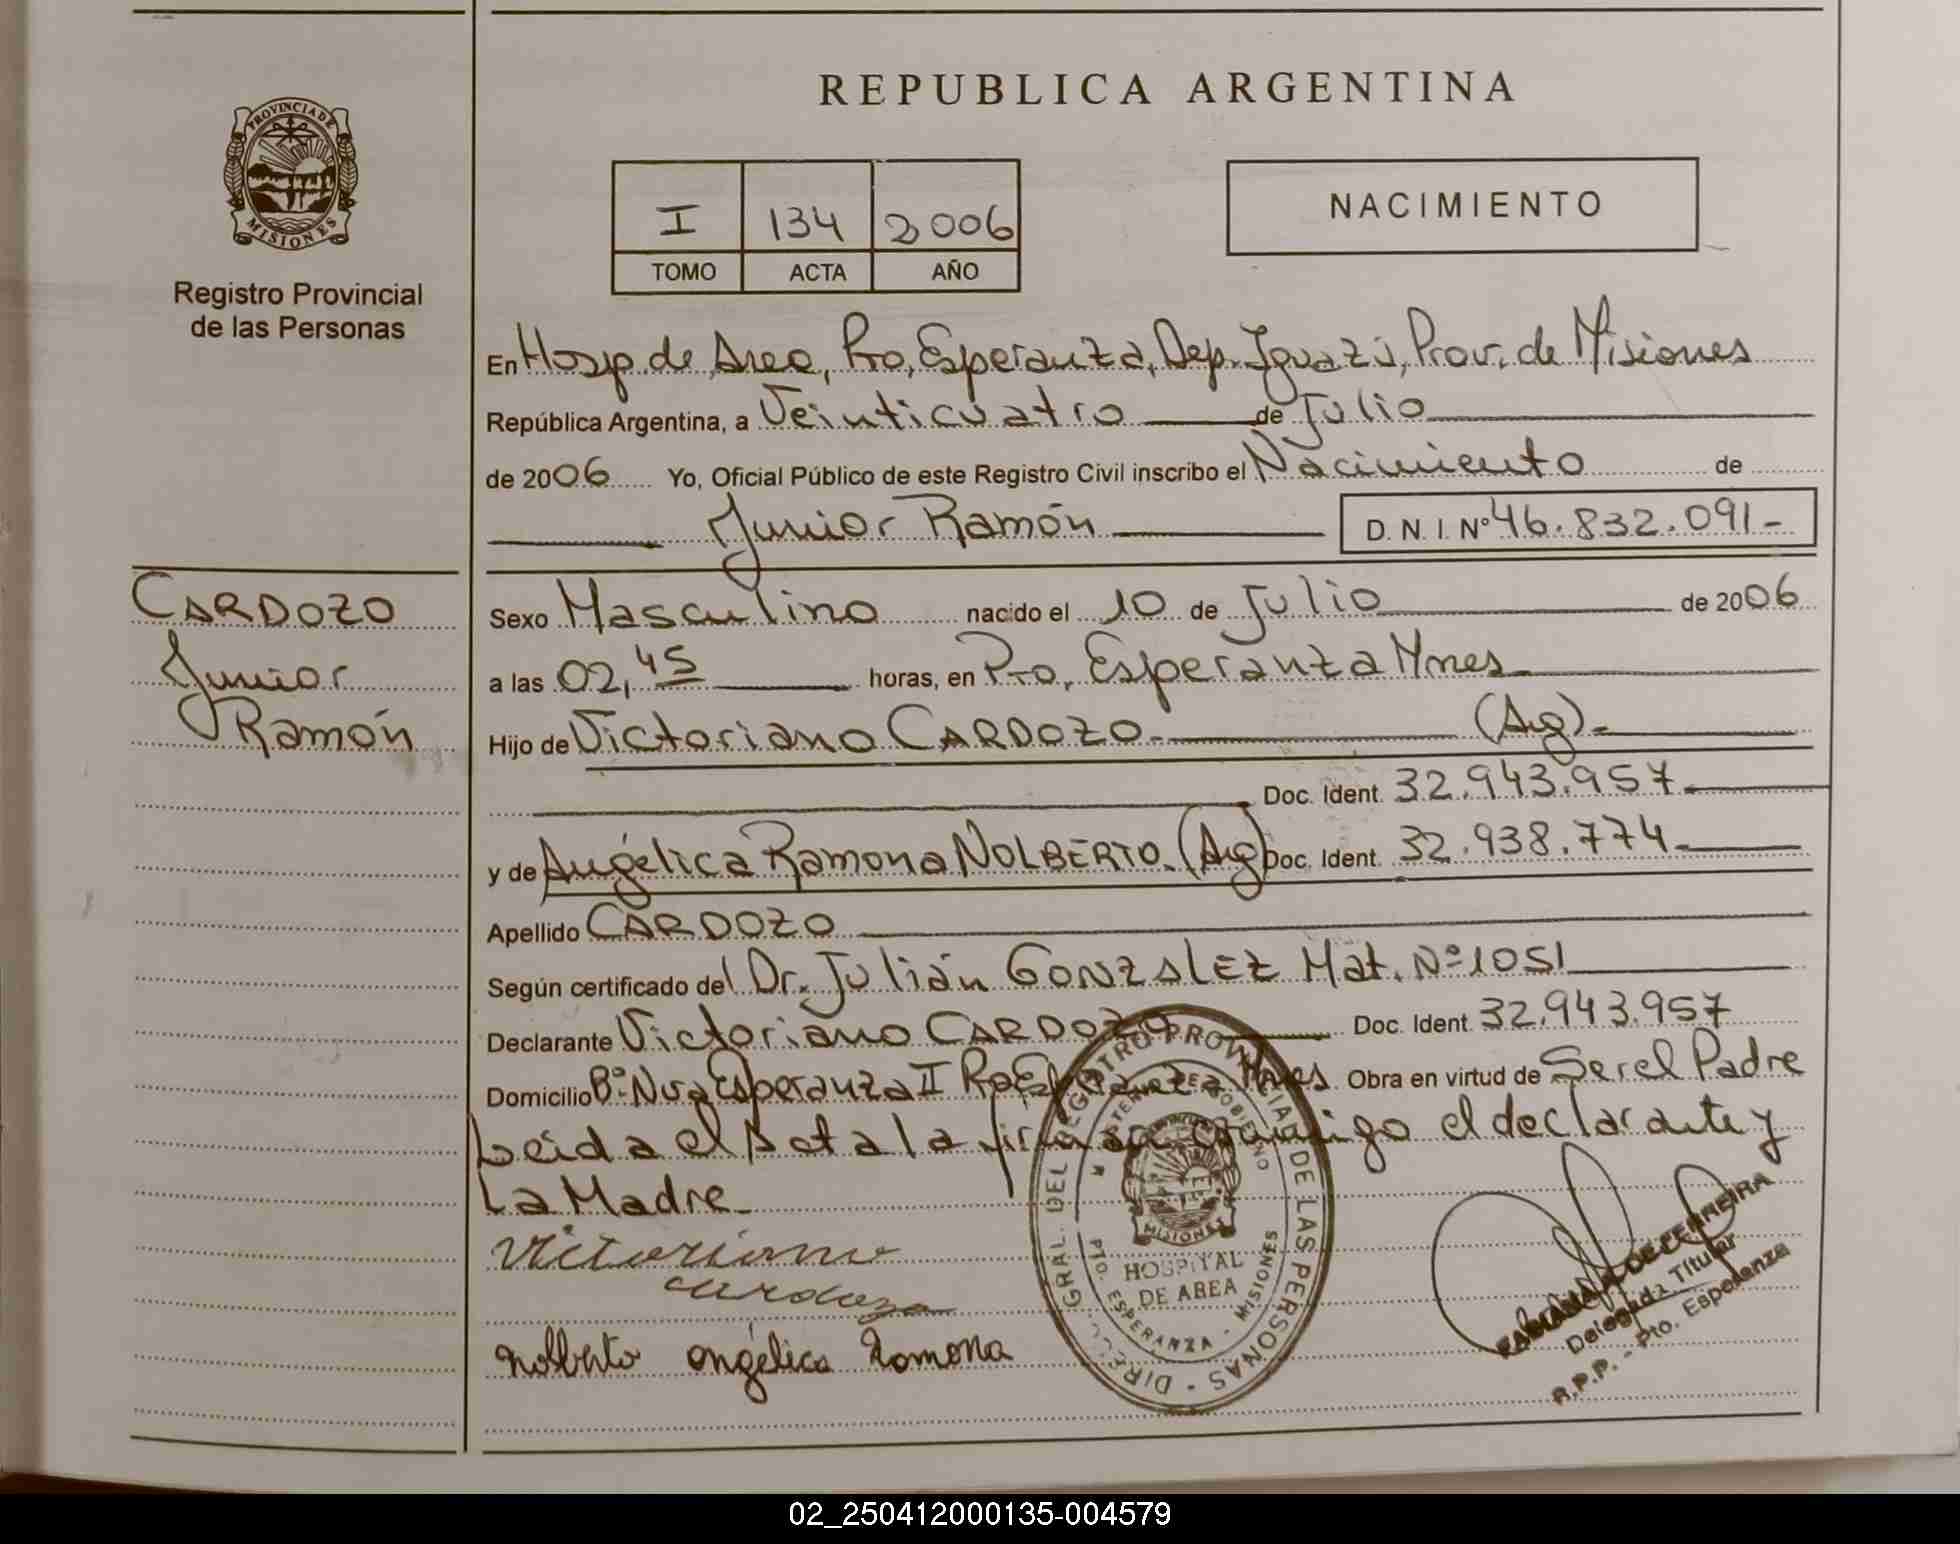 REPUBLICA ARGENTINA
PROVINCIA DE
MISIONES
Registro Provincial
de las Personas
I 134 2006
TOMO ACTA AÑO
NACIMIENTO
En Hosp. de Area, Pto, Esperanza, Dep. Iguazú, Prov. de Misiones
República Argentina, a Veinticuatro de Julio
de 2006 Yo, Oficial Público de este Registro Civil inscribo el Nacimiento de
Junior Ramón D.N.I. Nº 46.832.091-
CARDOZO
Junior
Ramón
Sexo Masculino nacido el 10 de Julio de 2006
a las 02,45 horas, en Pto, Esperanza Mnes
Hijo de Victoriano CARDOZO- (Arg)-
Doc. Ident. 32.943.957
y de Angélica Ramona NOLBERTO. (Arg) Doc. Ident. 32.938.774
Apellido CARDOZO
Según certificado del Dr. Julián GONZALEZ Mat. Nº 1051
Declarante Victoriano CARDOZO Doc. Ident. 32.943.957
Domicilio Bº Nva Esperanza II Pto Esperanza Mnes Obra en virtud de Ser el Padre
Leida el Acta la firman conmigo el declarante y
La Madre
Victoriano
cardozo
Nolberto angélica Ramona
DIREC. GRAL. DEL REGISTRO PROVINCIAL DE LAS PERSONAS
MISIONES
HOSPITAL
DE AREA
PTO. ESPERANZA - MISIONES
Delegada Titular
R.P.P. - Pto. Esperanza
02_250412000135-004579